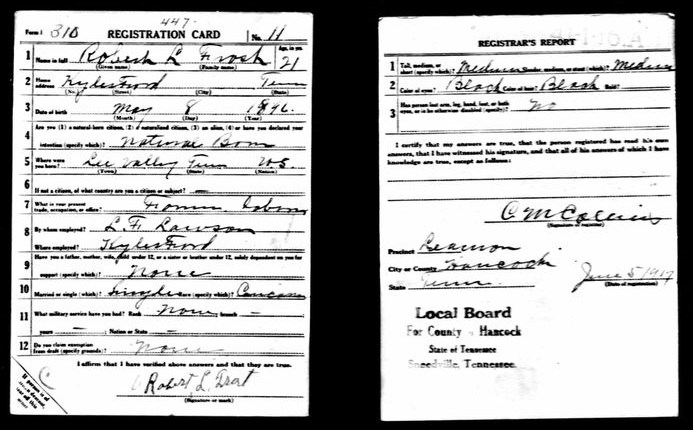 447
Form 1 310 REGISTRATION CARD No. 11
1 Name in full Robert L Frost Age, in yrs. 21
(Given name) (Family name)
2 Home address Kyles Ford Tenn
(No.) (Street) (City) (State)
3 Date of birth May 8 1896
(Month) (Day) (Year)
4 Are you (1) a natural-born citizen, (2) a naturalized citizen, (3) an alien, (4) or have you declared your
intention (specify which)? Natural Born
5 Where were you born? Lee Valley Tenn US
(Town) (State) (Nation)
6 If not a citizen, of what country are you a citizen or subject? —
7 What is your present trade, occupation, or office? Farm labor
8 By whom employed? L. F. Lawson
Where employed? Kyles Ford
9 Have you a father, mother, wife, child under 12, or a sister or brother under 12, solely dependent on you for
support (specify which)? None
10 Married or single (which)? Single Race (specify which)? Caucasian
11 What military service have you had? Rank None branch —
years — Nation or State —
12 Do you claim exemption from draft (specify grounds)? None
I affirm that I have verified above answers and that they are true.
Robert L. Frost
(Signature or mark)
If person is of African descent, cut off this corner
REGISTRAR'S REPORT
1 Tall, medium, or short (specify which)? Medium Slender, medium, or stout (which)? Medium
2 Color of eyes? Black Color of hair? Black Bald?
3 Has person lost arm, leg, hand, foot, or both
eyes, or is he otherwise disabled (specify)? No
I certify that my answers are true, that the person registered has read his own
answers, that I have witnessed his signature, and that all of his answers of which I have
knowledge are true, except as follows:
C M Collins
(Signature of registrar)
Precinct
City or County Hancock
State Tenn
June 5 1917
(Date of registration)
Local Board
For County Hancock
State of Tennessee
Sneedville, Tennessee.